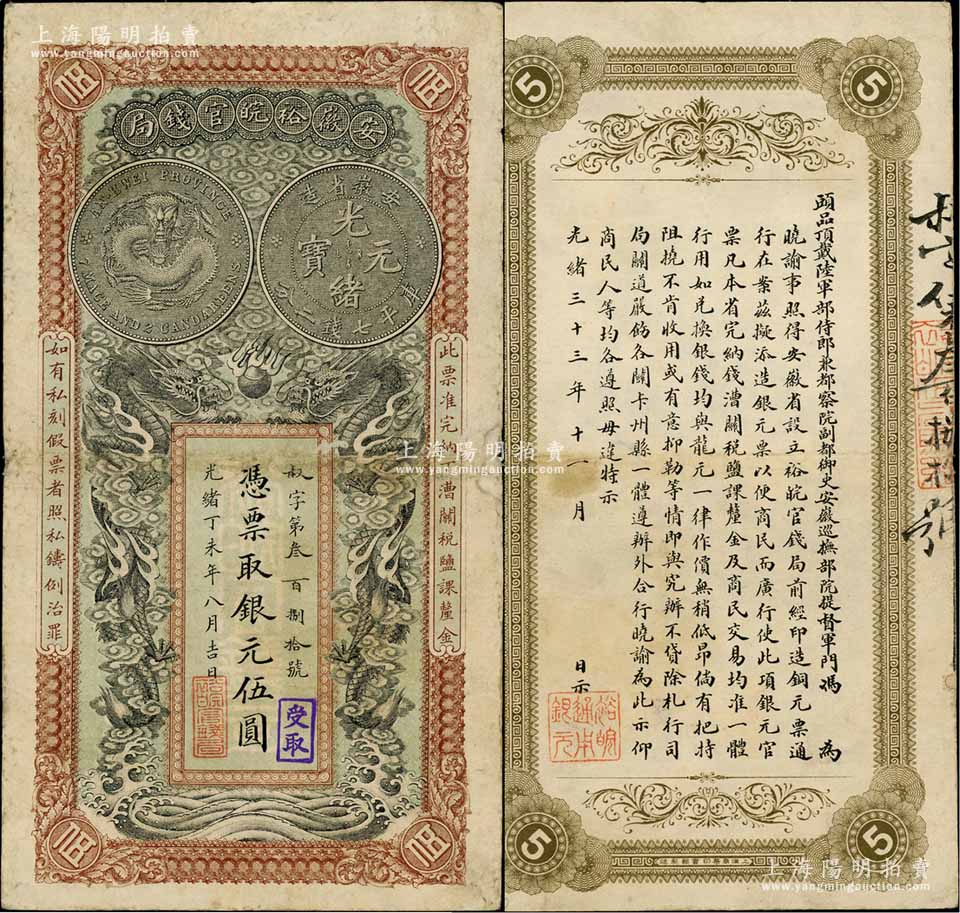 上海陽明拍賣
www.yangmingauction.com
伍
伍
安徽裕皖官錢局
AN HWEI PROVINCE
MACE AND 2 CANDAREENS
安徽省造
光緒元寶
庫平七錢二分
此票准完納錢漕關稅鹽課釐金
如有私刻假票者照私鑄例治罪
叔字第叁百捌拾號
憑票取銀元伍圓
光緒丁未年八月吉日
受取
伍
伍
上海陽明拍賣
www.yangmingauction.com
上海陽明拍賣
www.yangmingauction.com
5
5
頭品頂戴陸軍部侍郎兼都察院副都御史安徽巡撫部院提督軍門馮 為
曉諭事照得安徽省設立裕皖官錢局前經印造銅元票通
行在案茲擬添造銀元票以便商民而廣行使此項銀元官
票凡本省完納錢漕關稅鹽課釐金及商民交易均准一體
行用如兌換銀錢均與龍元一律作價無稍低昂倘有把持
阻撓不肯收用或有意抑勒等情即與究辦不貸除札行司
局關道嚴飭各關卡州縣一體遵辦外合行曉諭為此示仰
商民人等均各遵照毋違特示
光緒三十三年十一月 日示
裕皖通本銀元
5
5
上海陽明拍賣
www.yangmingauction.com